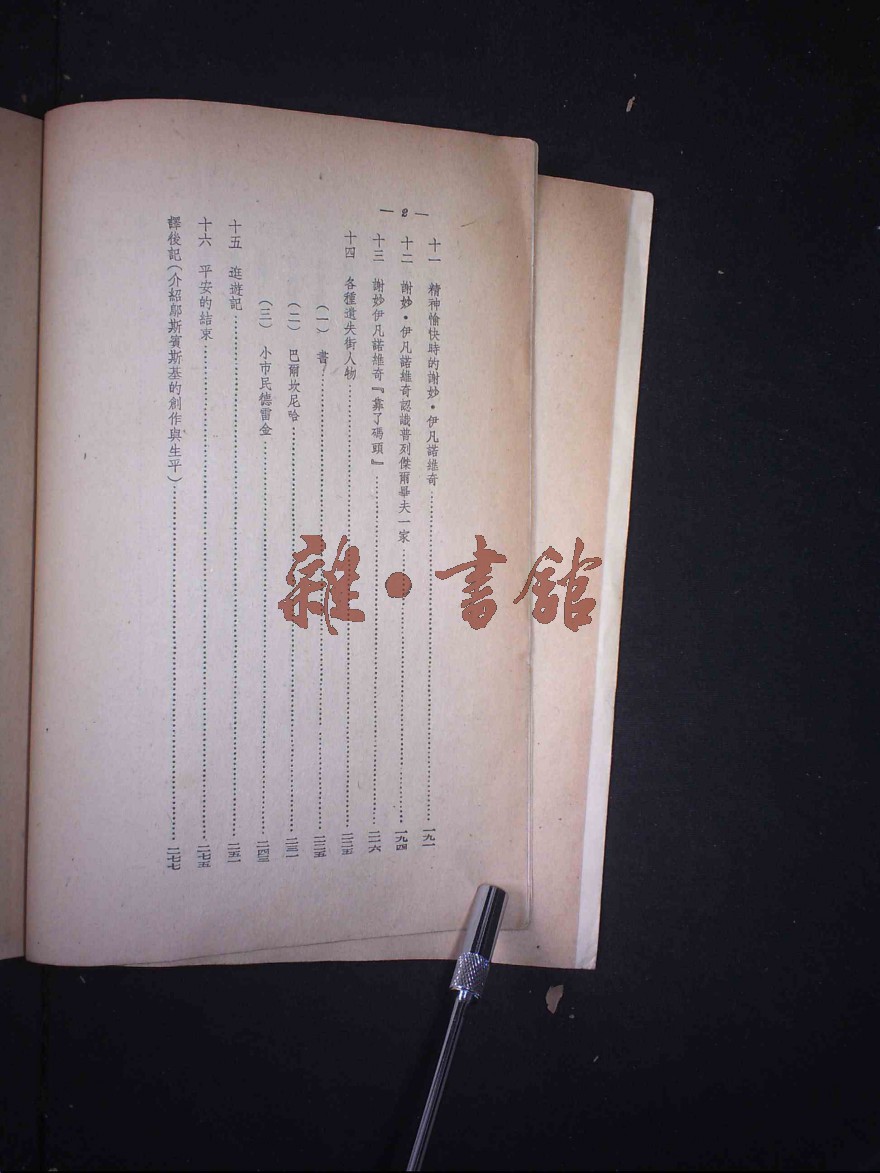 — 2 —
十一 精神愉快時的謝妙•伊凡諾維奇……一九一
十二 謝妙•伊凡諾維奇認識普列傑爾畢夫一家……一九四
十三 謝妙伊凡諾維奇『靠了碼頭』……二一六
十四 各種遺失街人物……二二五
(一) 書……二二五
(二) 巴爾坎尼哈……二三一
(三) 小市民德雷金……二四三
十五 逛遊記……二五一
十六 平安的結束……二七五
譯後記(介紹鄔斯賓斯基的創作與生平)……二七七
雜•書館